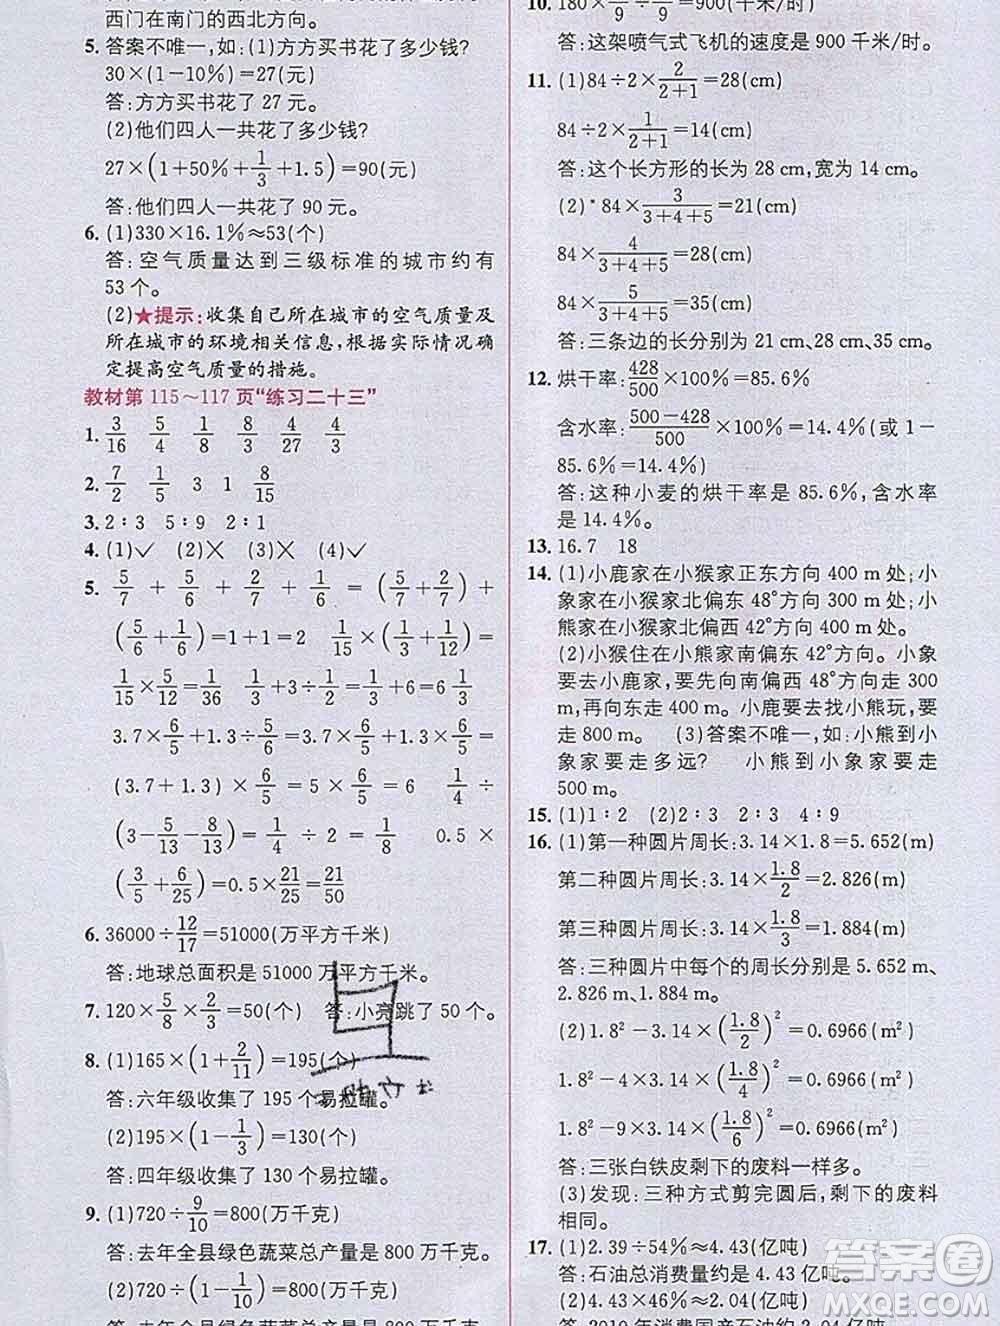 西门在南门的西北方向。
5. 答案不唯一,如:(1)方方买书花了多少钱?
30×(1-10%)=27(元)
答:方方买书花了 27 元。
(2)他们四人一共花了多少钱?
27×(1+50%+1/3+1.5)=90(元)
答:他们四人一共花了 90 元。
6. (1)330×16.1%≈53(个)
答:空气质量达到三级标准的城市约有
53 个。
(2)★提示:收集自己所在城市的空气质量及
所在城市的环境相关信息,根据实际情况确
定提高空气质量的措施。
教材第 115~117 页“练习二十三”
1. 3/16 5/4 1/8 8/3 4/27 4/3
2. 7/2 1/5 3 1 8/15
3. 2∶3 5∶9 2∶1
4. (1)✓ (2)✕ (3)✕ (4)✓
5. 5/7 + 1/6 + 2/7 + 5/6 = (5/7+2/7) +
(5/6+1/6)=1+1=2 1/15×(1/6+1/4)=
1/15×5/12=1/36 1/3+3÷1/2=6 1/3
3.7×6/5+1.3÷5/6=3.7×6/5+1.3×6/5=
(3.7+1.3)×6/5=5×6/5=6 1/4÷
(3-5/13-8/13)=1/4÷2=1/8 0.5×
(3/5+6/25)=0.5×21/25=21/50
6. 36000÷12/17=51000(万平方千米)
答:地球总面积是 51000 万平方千米。
7. 120×5/8×2/3=50(个) 答:小亮跳了 50 个。
8. (1)165×(1+2/11)=195(个)
答:六年级收集了 195 个易拉罐。
(2)195×(1-1/3)=130(个)
答:四年级收集了 130 个易拉罐。
9. (1)720÷9/10=800(万千克)
答:去年全县绿色蔬菜总产量是 800 万千克。
(2)720÷(1-1/10)=800(万千克)
答:去年全县绿色蔬菜总产量是 800 万千克。
10. 180×5/9÷1/9=900(千米/时)
答:这架喷气式飞机的速度是 900 千米/时。
11. (1)84÷2×2/2+1=28(cm)
84÷2×1/2+1=14(cm)
答:这个长方形的长为 28 cm,宽为 14 cm。
(2)84×3/3+4+5=21(cm)
84×4/3+4+5=28(cm)
84×5/3+4+5=35(cm)
答:三条边的长分别为 21 cm、28 cm、35 cm。
12. 烘干率:428/500×100%=85.6%
含水率:500-428/500×100%=14.4%(或 1-
85.6%=14.4%)
答:这种小麦的烘干率是 85.6%,含水率
是 14.4%。
13. 16.7 18
14. (1)小鹿家在小猴家正东方向 400 m 处;小
象家在小猴家北偏东 48°方向 300 m 处;小
熊家在小猴家北偏西 42°方向 400 m 处。
(2)小猴住在小熊家南偏东 42°方向。小象
要去小鹿家,要先向南偏西 48°方向走 300
m,再向东走 400 m。小鹿要去找小熊玩,要
走 800 m。 (3)答案不唯一,如:小熊到小
象家要走多远? 小熊到小象家要走
500 m。
15. (1)1∶2 (2)2∶3 2∶3 4∶9
16. (1)第一种圆片周长:3.14×1.8=5.652(m)
第二种圆片周长:3.14×1.8/2=2.826(m)
第三种圆片周长:3.14×1.8/3=1.884(m)
答:三种圆片中每个的周长分别是 5.652 m、
2.826 m、1.884 m。
(2)1.8²-3.14×(1.8/2)²=0.6966(m²)
1.8²-4×3.14×(1.8/4)²=0.6966(m²)
1.8²-9×3.14×(1.8/6)²=0.6966(m²)
答:三张白铁皮剩下的废料一样多。
(3)发现:三种方式剪完圆后,剩下的废料
相同。
17. (1)2.39÷54%≈4.43(亿吨)
答:石油总消费量约是 4.43 亿吨。
(2)4.43×46%≈2.04(亿吨)
答:2010 年消费国产石油约 2.04 亿吨
答案圈
MXQE.COM